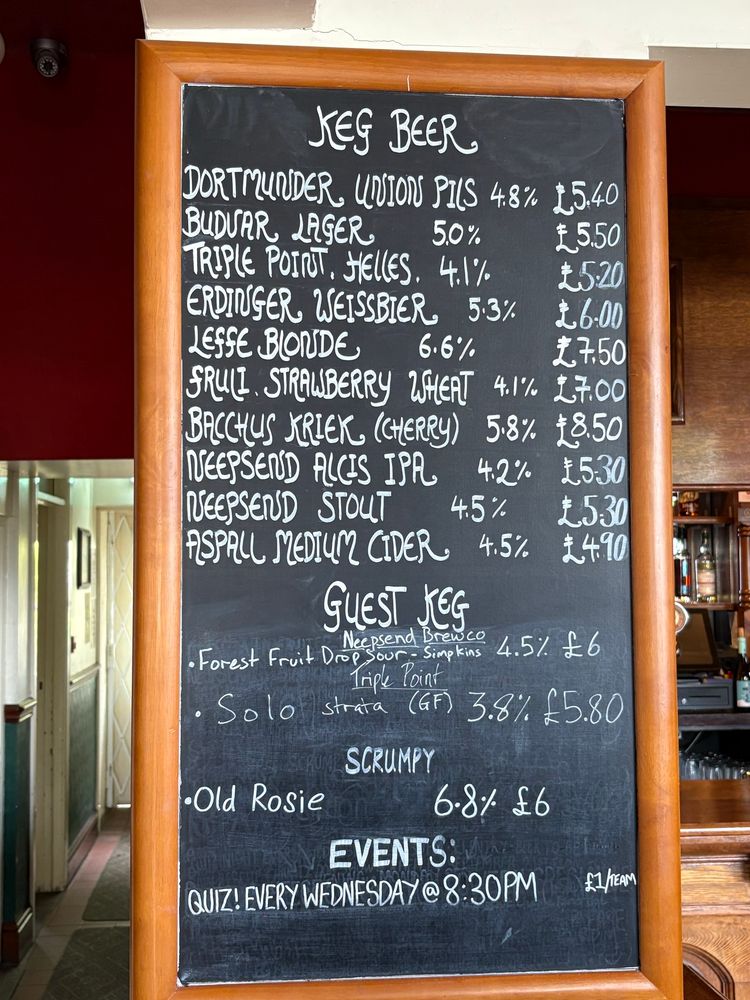 KEG BEER
DORTMUNDER UNION PILS 4.8% £5.40
BUDVAR LAGER 5.0% £5.50
TRIPLE POINT. HELLES. 4.1% £5.20
ERDINGER WEISSBIER 5.3% £6.00
LEFFE BLONDE 6.6% £7.50
FRULI. STRAWBERRY WHEAT 4.1% £7.00
BACCHUS KRIEK (CHERRY) 5.8% £8.50
NEEPSEND ALCIS IPA 4.2% £5.30
NEEPSEND STOUT 4.5% £5.30
ASPALL MEDIUM CIDER 4.5% £4.90
GUEST KEG
Neepsend Brewco
• Forest Fruit Drop Sour - Simpkins 4.5% £6
Triple Point
• Solo strata (GF) 3.8% £5.80
SCRUMPY
• Old Rosie 6.8% £6
EVENTS:
QUIZ! EVERY WEDNESDAY @ 8:30PM £1/TEAM